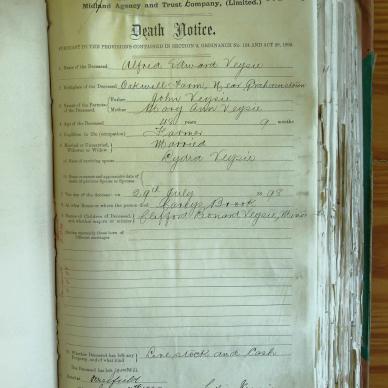 Midland Agency and Trust Company, (Limited.)
Death Notice.
PURSUANT TO THE PROVISIONS CONTAINED IN SECTION 9, ORDINANCE No. 104 AND ACT
1. Name of the Deceased Alfred Edward Veysie
2. Birthplace of the Deceased Oakwell Farm, Near Grahamstown
3. Names of the Parents of the Deceased Father John Veysie
Mother Mary Ann Veysie
4. Age of the Deceased 48 years 9 months
5. Condition in life (occupation) Farmer
6. Married or Unmarried, Widower or Widow Married
Name of surviving spouse Lydia Veysie
Name or names and approximate date of death of previous Spouse or Spouses
7. The day of the decease 29th July 98
8. At what House or where the person died Brook
9. Names of Children of Deceased, and whether majors or minors Clifford Leonard Veysie, Minor
Stating separately those born of different marriages
10. Whether Deceased has left any Property, and of what kind Live stock and Cash
The Deceased has left
Dated at